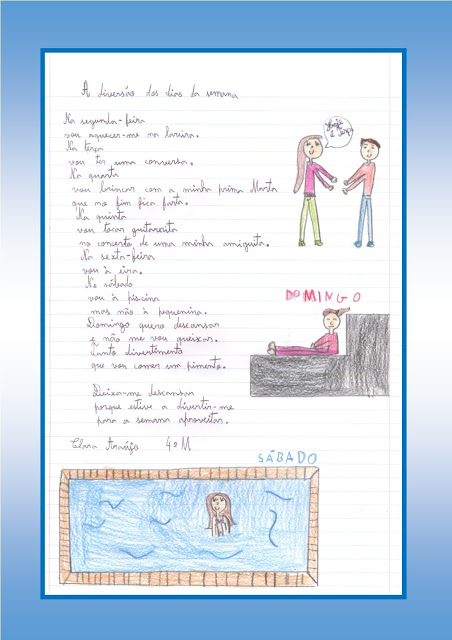 A diversão dos dias da semana
Na segunda-feira
vou aquecer-me na lareira.
Na terça
vou ter uma conversa.
Na quarta
vou brincar com a minha prima Marta
que no fim fica farta.
Na quinta
vou tocar guitarrita
no concerto de uma minha amiguita.
Na sexta-feira
vou à eira.
No sábado
vou à piscina
mas não à pequenina.
Domingo quero descansar
e não me vou queixar.
Tanto divertimento
que vou comer um pimento.
Deixa-me descansar
porque estive a divertir-me
para a semana aproveitar.
Clara Araújo 4º M
DOMINGO
SÁBADO